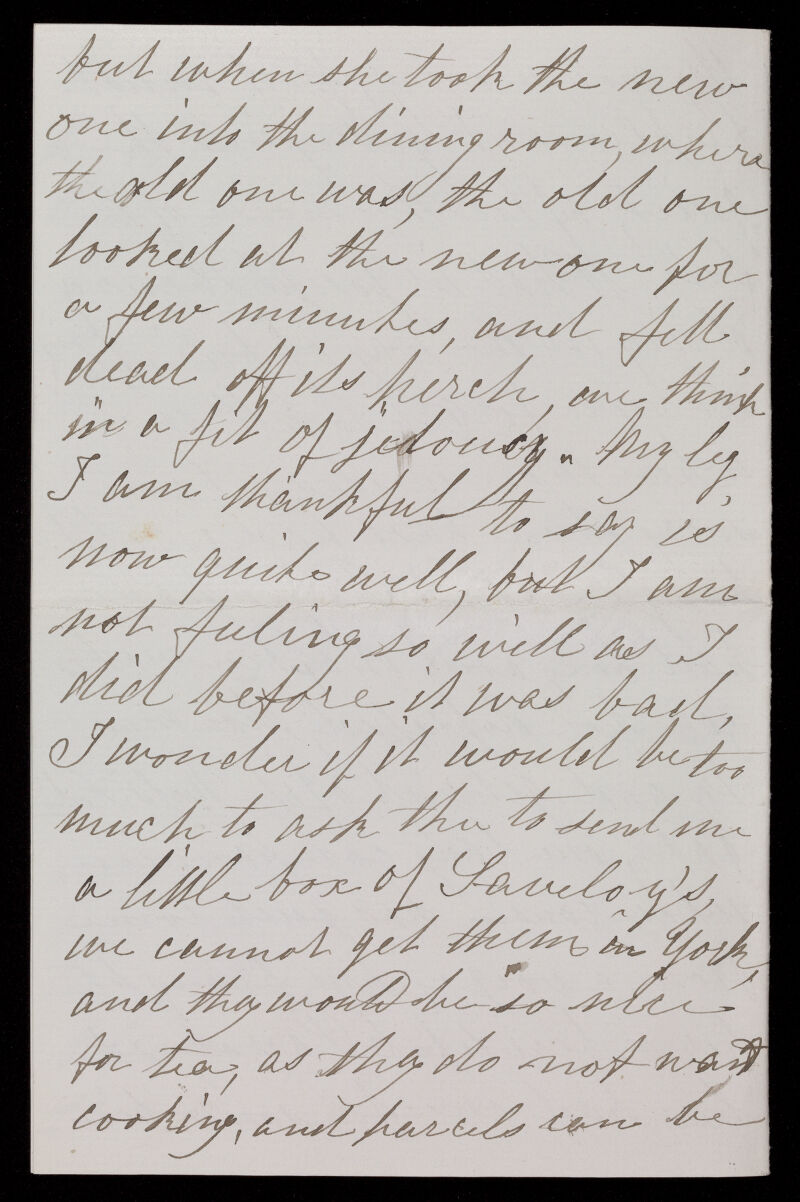 but when she took the new
one into the dining room, where
the old one was, the old one
looked at the new one for
a few minutes, and fell
dead off its perch, we think
in a fit of jelousy. My leg
I am thankful to say is
now quite well, but I am
not feeling so well as I
did before it was bad,
I wonder if it would be too
much to ask thee to send me
a little box of Saveloy's,
we cannot get them in York,
and they would be so nice
for tea, as they do not want
cooking, and parcels can be